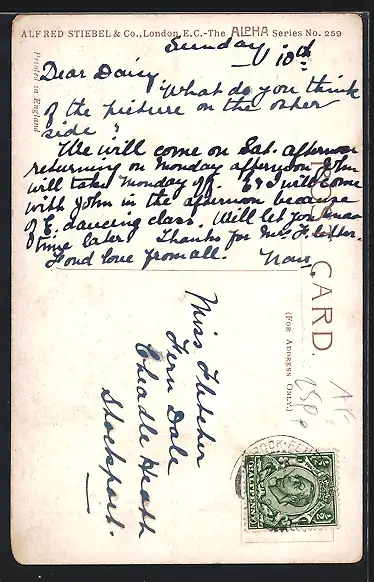 ALFRED STIEBEL & Co., London, E.C.-The ALPHA Series No. 259
Printed in England
Sunday 10th
Dear Daisy,
What do you think
of the picture on the other
side?
We will come on Sat. afternoon
returning on Monday afternoon John
will take Monday off. E & I will come
with John in the afternoon because
of E. dancing class. Will let you know
time later. Thanks for Mr. F letter.
Fond love from all.
POST CARD.
(FOR ADDRESS ONLY.)
Miss Fletcher
Fern Dale
Cheadle Heath
Stockport.